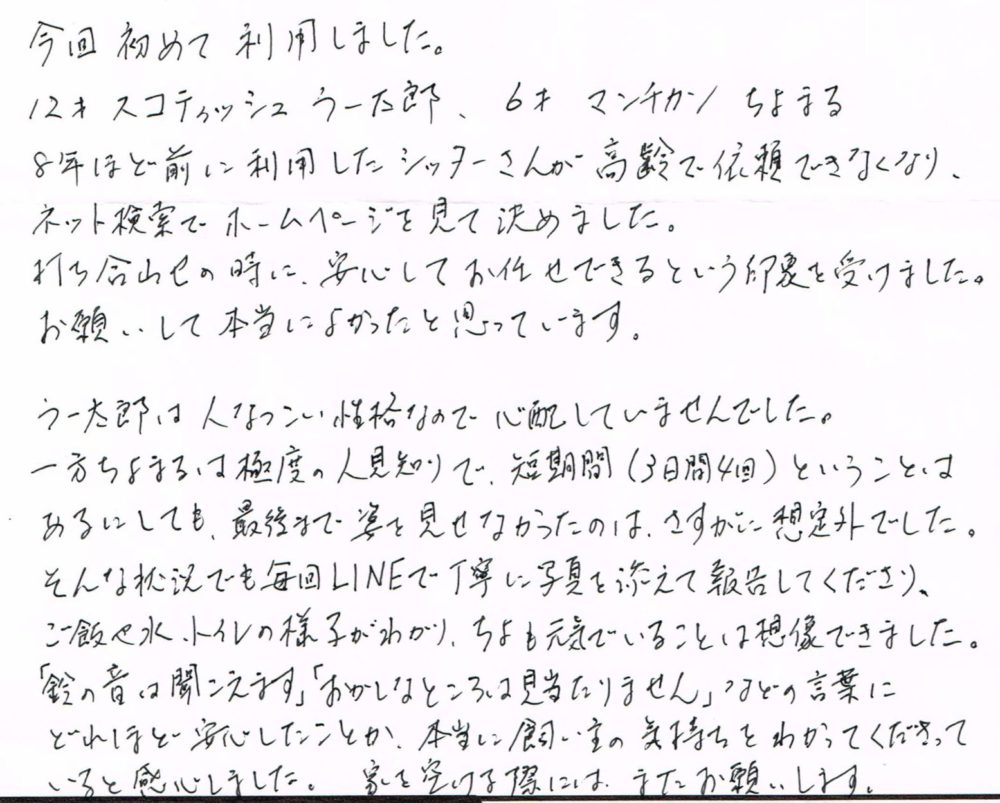 今回初めて利用しました。
12才 スコティッシュ うー太郎、 6才 マンチカン ちよまる
8年ほど前に利用したシッターさんが高齢で依頼できなくなり、
ネット検索でホームページを見て決めました。
打ち合わせの時に、安心してお任せできるという印象を受けました。
お願いして本当によかったと思っています。
うー太郎は人なつこい性格なので心配していませんでした。
一方ちよまるは極度の人見知りで、短期間(3日間4回)ということは
あるにしても、最後まで姿を見せなかったのは、さすがに想定外でした。
そんな状況でも毎回LINEで丁寧に写真を添えて報告してくださり、
ご飯や水、トイレの様子がわかり、ちよも元気でいることは想像できました。
「鈴の音は聞こえます」「おかしなところは見当たりません」などの言葉に
どれほど安心したことか、本当に飼い主の気持ちをわかってくださって
いると感心しました。 家を空ける際には、またお願いします。